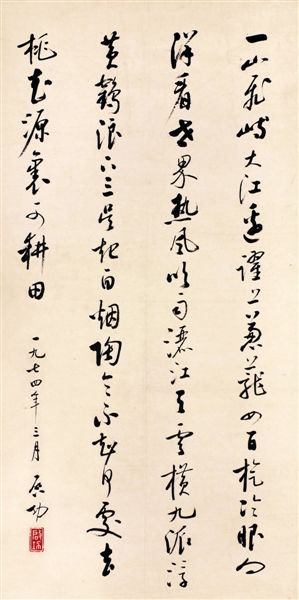 一山飛峙大江邊躍上葱蘢四百旋冷眼向
洋看世界熱風吹雨灑江天雲橫九派浮
黄鶴浪下三吳起白烟陶令不知何處去
桃花源裏可耕田
一九七四年三月 启功